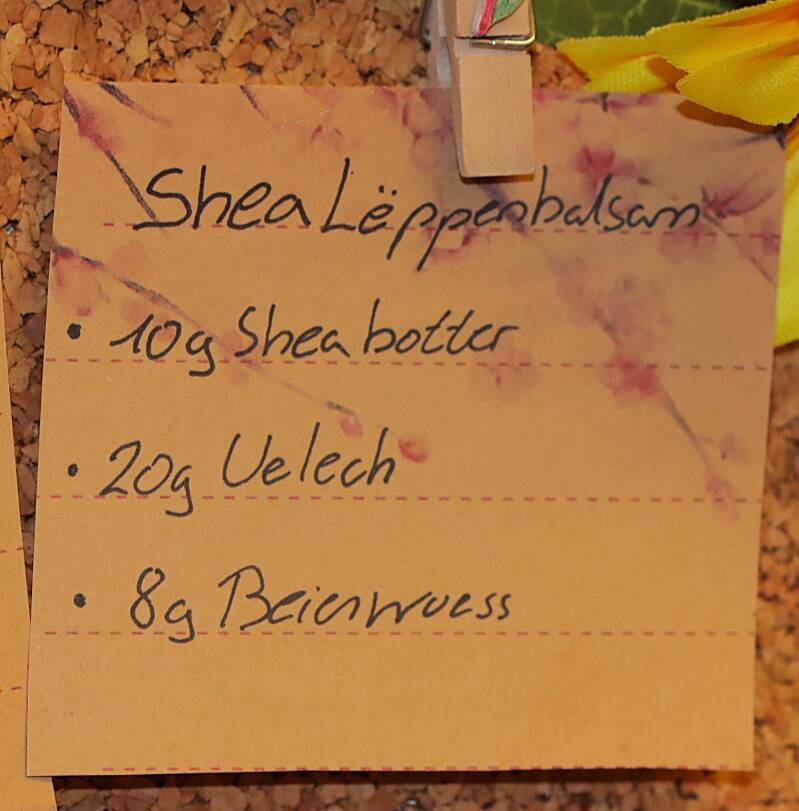 Shea Lëppenbalsam
• 10g Sheabotter
• 20g Uelech
• 8g Beienwuess